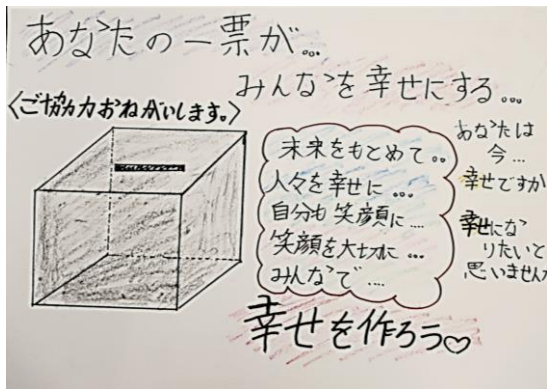 あなたの一票が...
みんなを幸せにする...
〈ご協力おねがいします。〉
未来をもとめて..
人々を幸せに...
自分も笑顔に....
笑顔を大切に...
みんなで....
あなたは
今...
幸せですか
幸せにな
りたいと
思いませんか
幸せを作ろう♡